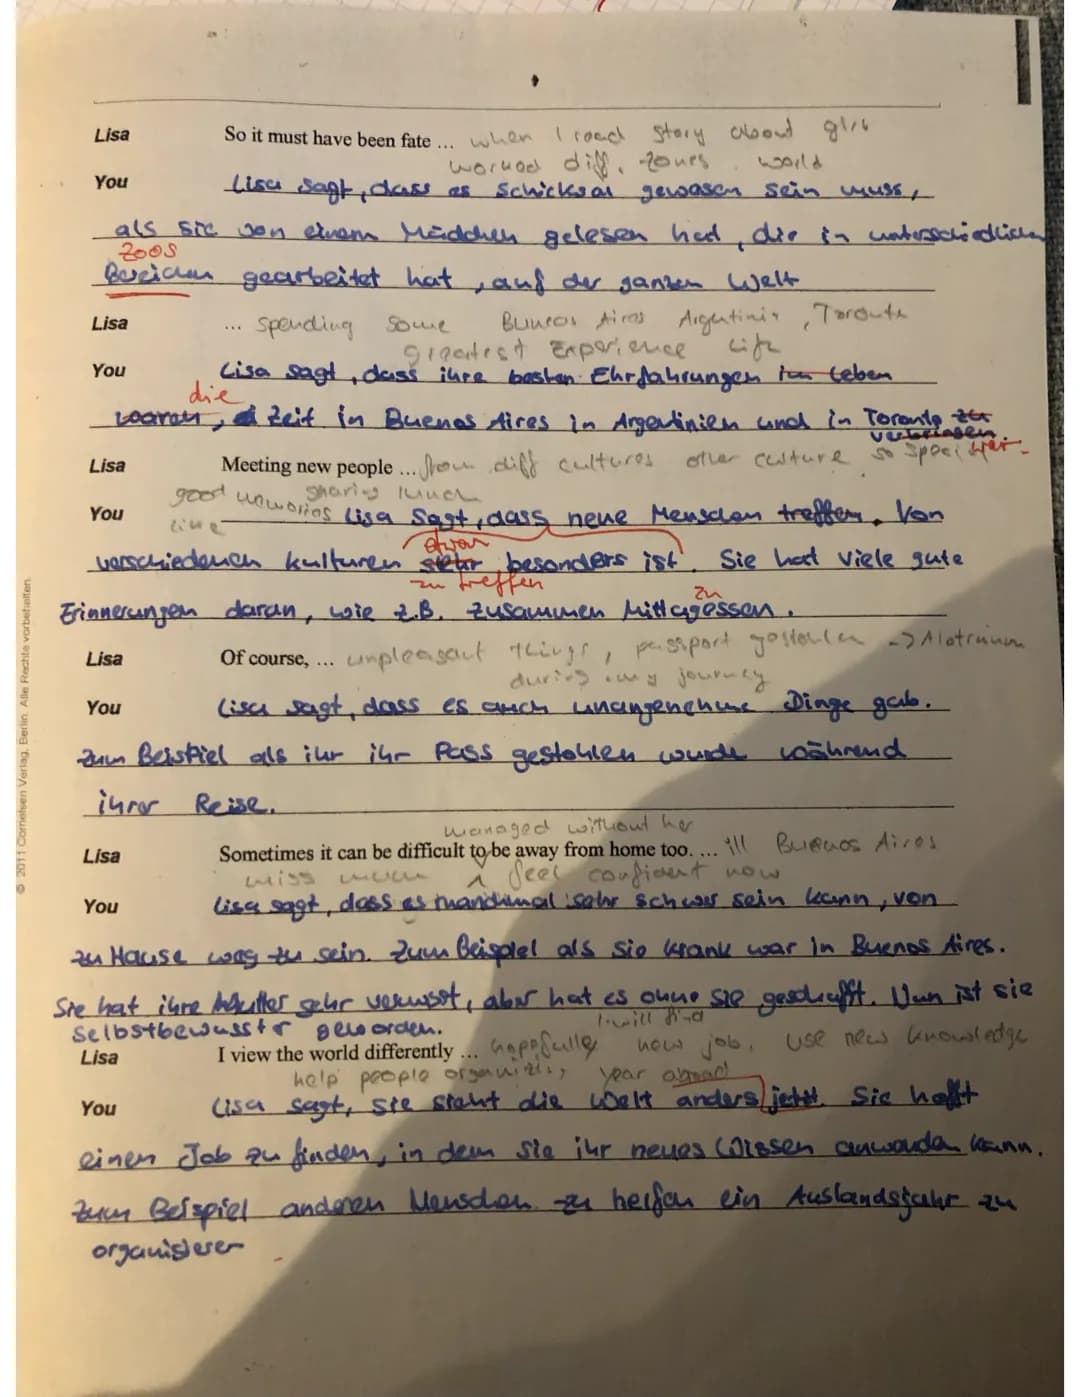 Lisa So it must have been fate ... when I read story about girl
worked diff. zones world
You Lisa sagt, dass es Schicksal gewesen sein muss,
als sie von einem Mädchen gelesen hat, die in unterschiedlichen
Zoos
Bereichen gearbeitet hat, auf der ganzen Welt
Lisa ... spending some Buneos Aires Argentinia, Toronto
greatest Experience life
You Lisa sagt, dass ihre besten Ehrfahrungen im Leben
die
waren, Zeit in Buenos Aires in Argentinien und in Toronto zu
verbringen.
war.
Lisa Meeting new people ... from diff cultures other culture so special
good memories sharing lunch
like
You Lisa sagt, dass neue Menschen treffen. Von
etwas
verschiedenen kulturen sehr besonders ist. Sie hat viele gute
zu treffen zu
Erinnerungen daran, wie z.B. zusammen Mittagessen.
Lisa Of course, ... unpleasant things, passport gestohlen ->
during my journey
You Lisa sagt, dass es auch unangenehme Dinge gab.
Zum Beispiel als ihr ihr Pass gestohlen wurde während
ihrer Reise.
managed without her
Lisa Sometimes it can be difficult to be away from home too. ... ill Buenos Aires
miss mum feel confident now
You Lisa sagt, dass es manchmal sehr schwer sein kann, von
zu Hause weg zu sein. Zum Beispiel als Sie krank war in Buenos Aires.
Sie hat ihre Mutter sehr vermisst, aber hat es ohne sie geschafft. Nun ist sie
selbstbewusster geworden.
I will find
Lisa I view the world differently ... hopefully new job, use new knowledge
help people year abroad
You Lisa sagt, sie sieht die Welt anders jetzt. Sie hofft
einen Job zu finden, in dem Sie ihr neues Wissen anwenden kann.
Zum Beispiel anderen Menschen zu helfen ein Auslandsjahr zu
organisieren
© 2011 Cornelsen Verlag, Berlin. Alle Rechte vorbehalten.